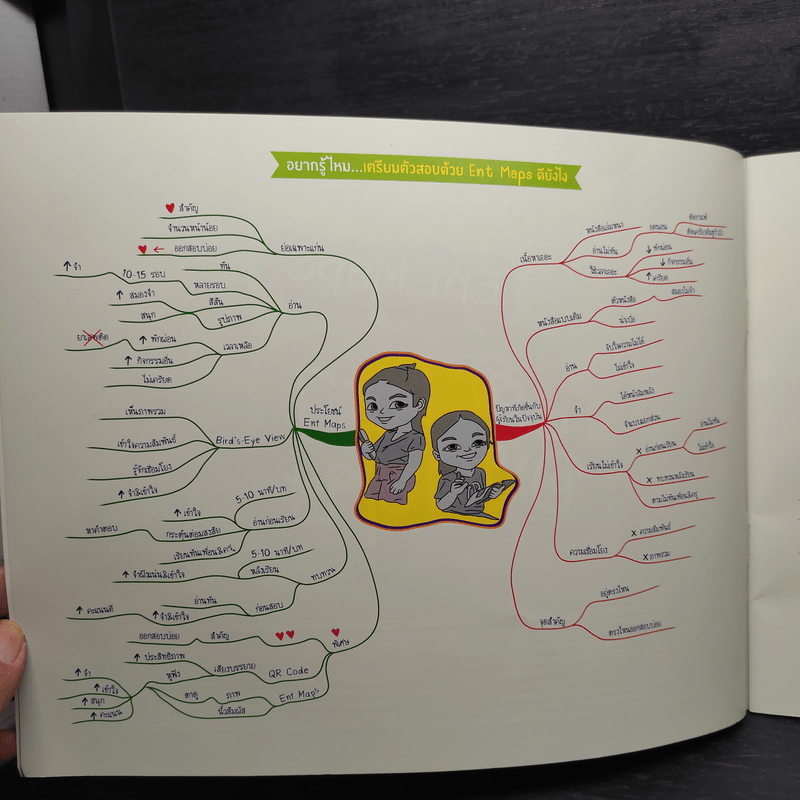 อยากรู้ไหม...เตรียมตัวสอบด้วย Ent Maps ดียังไง
ประโยชน์
Ent Maps
ย่อเฉพาะแก่น
♥ สำคัญ
จำนวนหน้าน้อย
♥ ← ออกสอบบ่อย
อ่าน
ทัน
หลายรอบ
10-15 รอบ
↑ จำ
รูปภาพ
สีสัน
↑ สมองจำ
สนุก
เวลาเหลือ
↑ พักผ่อน
ยาเสพติด
↑ กิจกรรมอื่น
ไม่เครียด
Bird's-Eye View
เห็นภาพรวม
เข้าใจความสัมพันธ์
รู้จักเชื่อมโยง
↑ จำ&เข้าใจ
ทบทวน
อ่านก่อนเรียน
5-10 นาที/บท
↑ เข้าใจ
กระตุ้นต่อมสงสัย
หาคำตอบ
เรียนทันเพื่อน&ครู
หลังเรียน
5-10 นาที/บท
↑ จำฝังแน่น&เข้าใจ
ก่อนสอบ
อ่านทัน
↑ จำ&เข้าใจ
↑ คะแนนดี
♥
พิเศษ
♥♥
สำคัญ
ออกสอบบ่อย
QR Code
เสียงบรรยาย
↑ ประสิทธิภาพ
หูฟัง
Ent Maps
ภาพ
ตาดู
นิ้วสัมผัส
↑ จำ
↑ เข้าใจ
↑ สนุก
↑ คะแนน
ปัญหาที่เกิดขึ้นกับ
ผู้เรียนในปัจจุบัน
เนื้อหาเยอะ
หนังสือเล่มหนา
อ่านไม่ทัน
อดนอน
ติดกาแฟ
ติดเครื่องดื่มชูกำลัง
ใช้เวลาเยอะ
↓ พักผ่อน
↓ กิจกรรมอื่น
↑ เครียด
หนังสือแบบเดิม
ตัวหนังสือ
สมองไม่จำ
น่าเบื่อ
อ่าน
จับใจความไม่ได้
ไม่เข้าใจ
จำ
ได้หน้าลืมหลัง
จำแบบแยกส่วน
เรียนไม่เข้าใจ
x อ่านก่อนเรียน
อ่านไม่ทัน
ไม่เข้าใจ
x ทบทวนหลังเรียน
ตามไม่ทันเพื่อน&ครู
ความเชื่อมโยง
x ความสัมพันธ์
x ภาพรวม
จุดสำคัญ
อยู่ตรงไหน
ตรงไหนออกสอบบ่อย